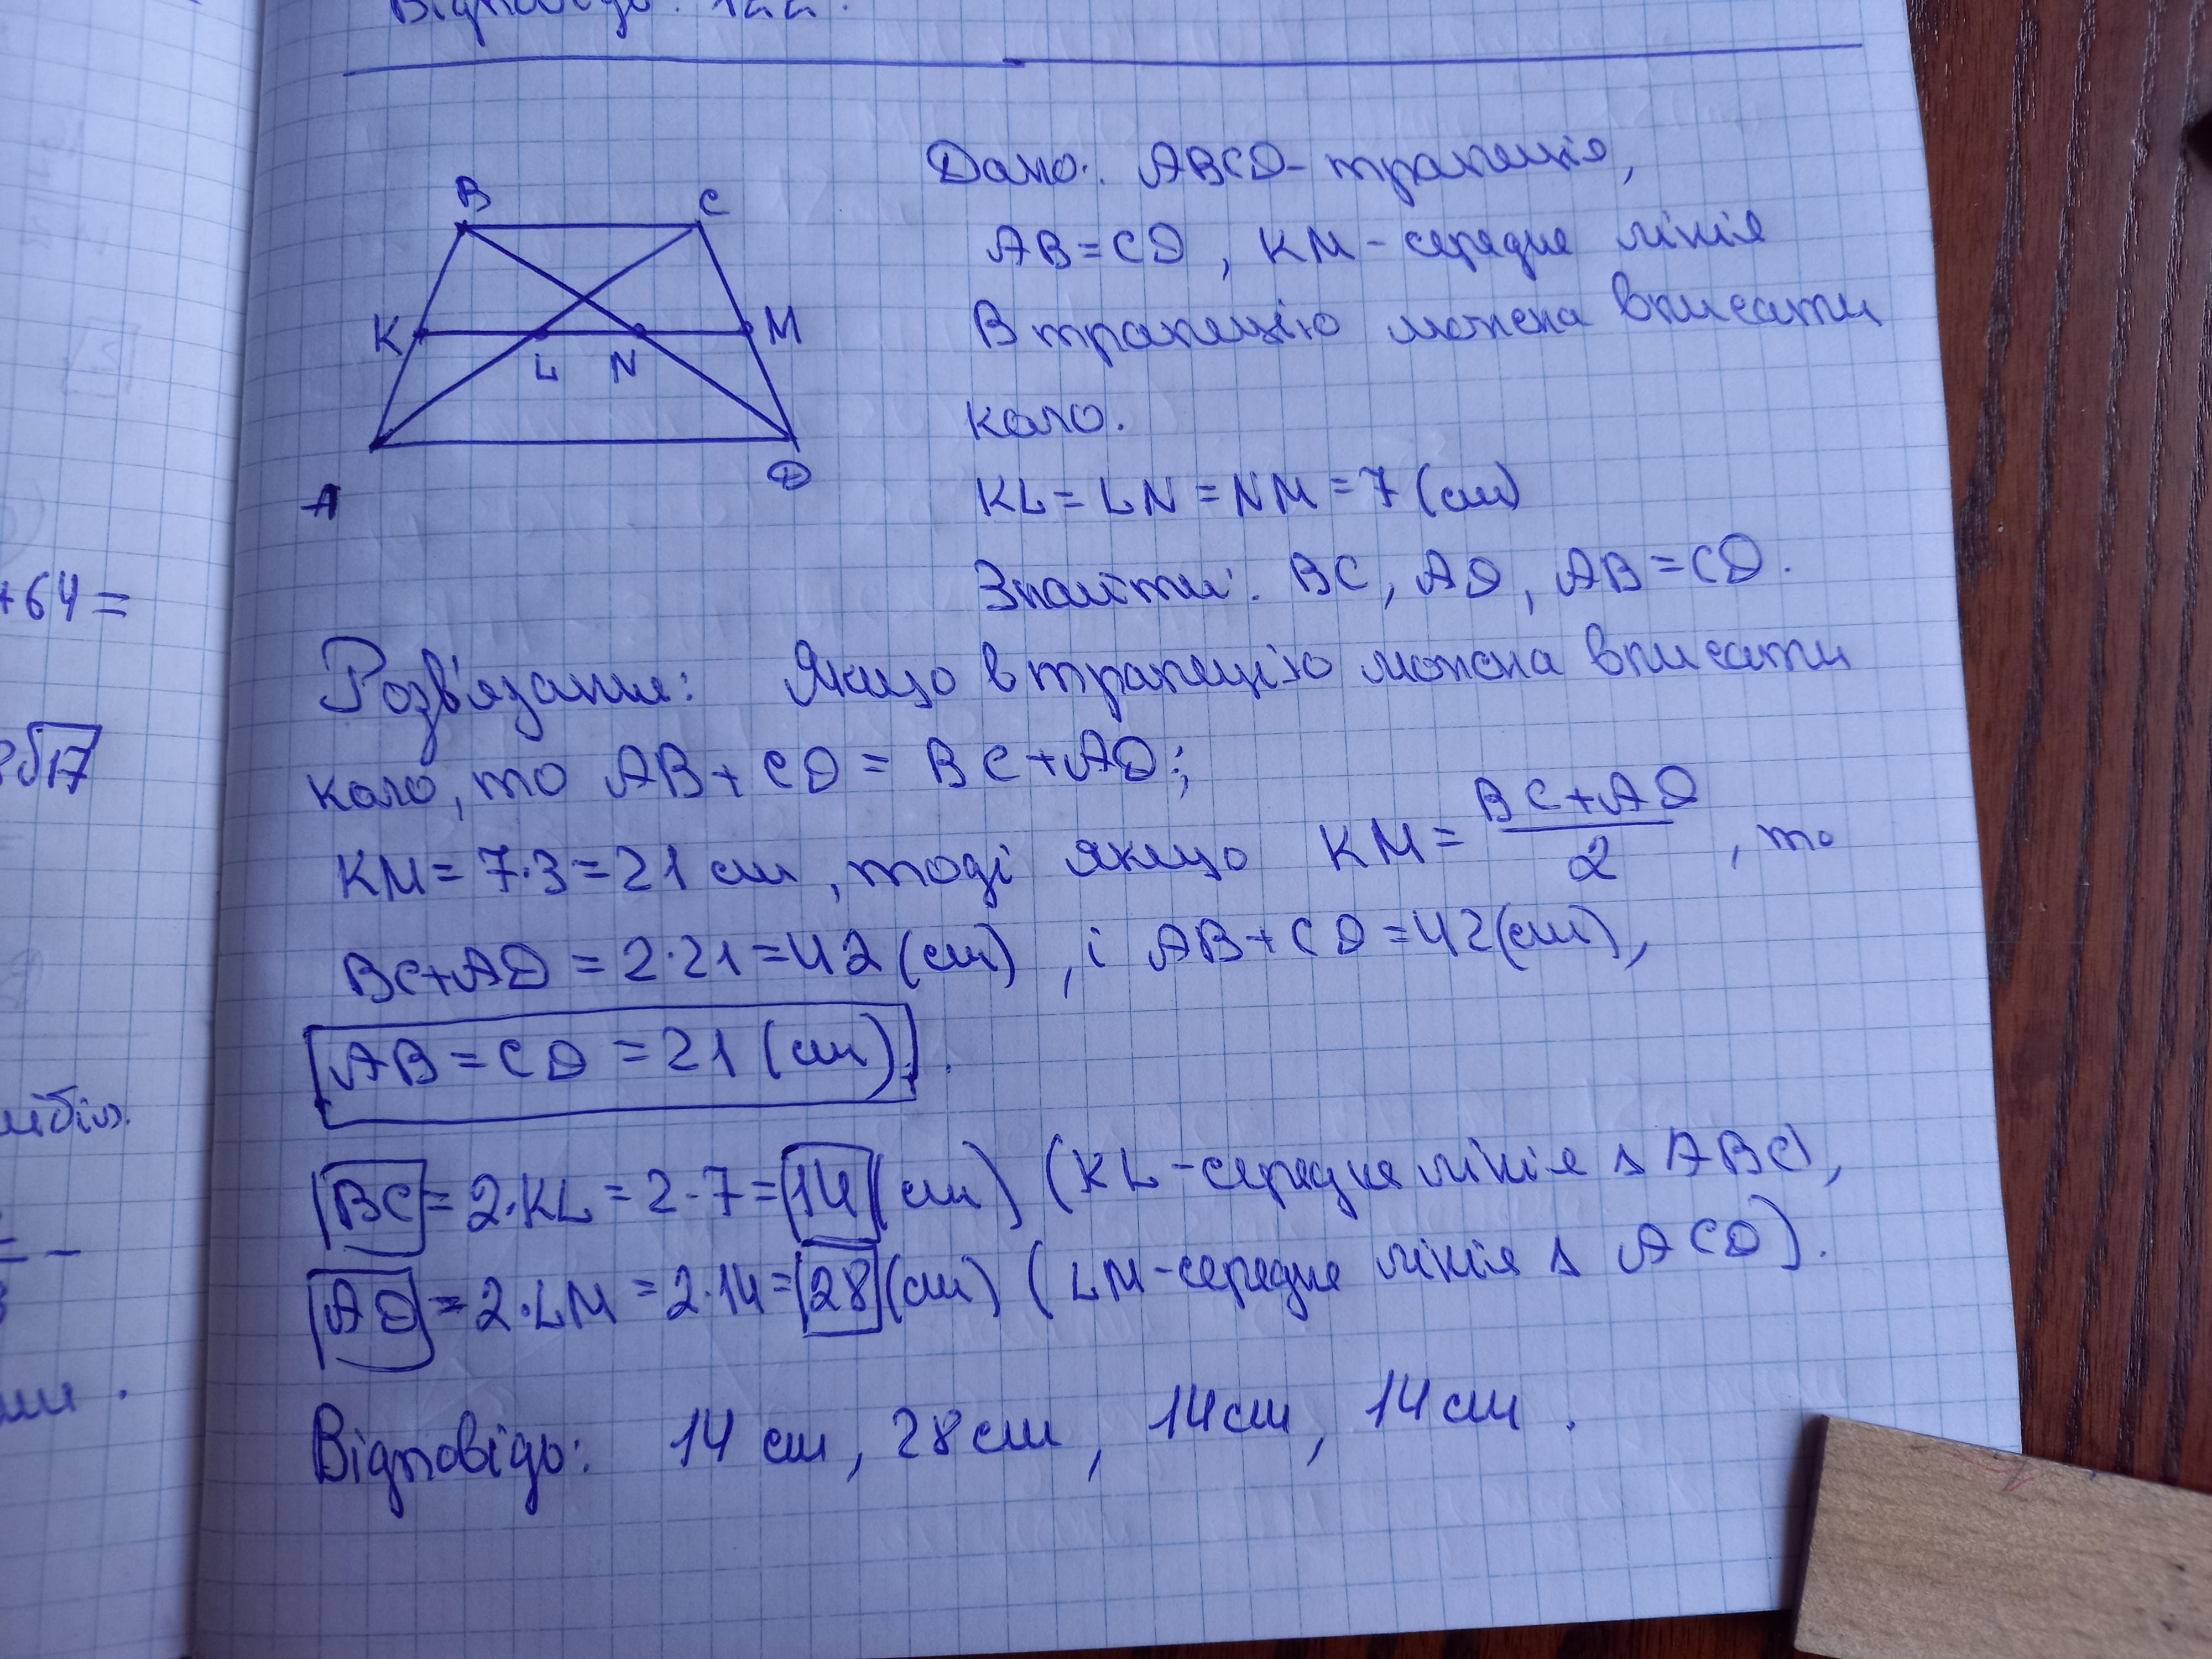 Відповідь:
B
C
K
M
L N
A
D
Дано: ABCD - трапеція,
AB = CD, KM - середня лінія
В трапецію можна вписати
коло.
KL = LN = NM = 7 (см)
Знайти: BC, AD, AB = CD.
Розв'язання: Якщо в трапецію можна вписати
коло, то AB + CD = BC + AD;
KM = 7·3 = 21 см, тоді якщо KM = (BC + AD)/2, то
BC + AD = 2·21 = 42 (см), і AB + CD = 42 (см),
AB = CD = 21 (см).
BC = 2·KL = 2·7 = 14 (см) (KL - середня лінія Δ ABC),
AD = 2·LM = 2·14 = 28 (см) (LM - середня лінія Δ ACD).
Відповідь: 14 см, 28 см, 14 см, 14 см.
+64 =
√17